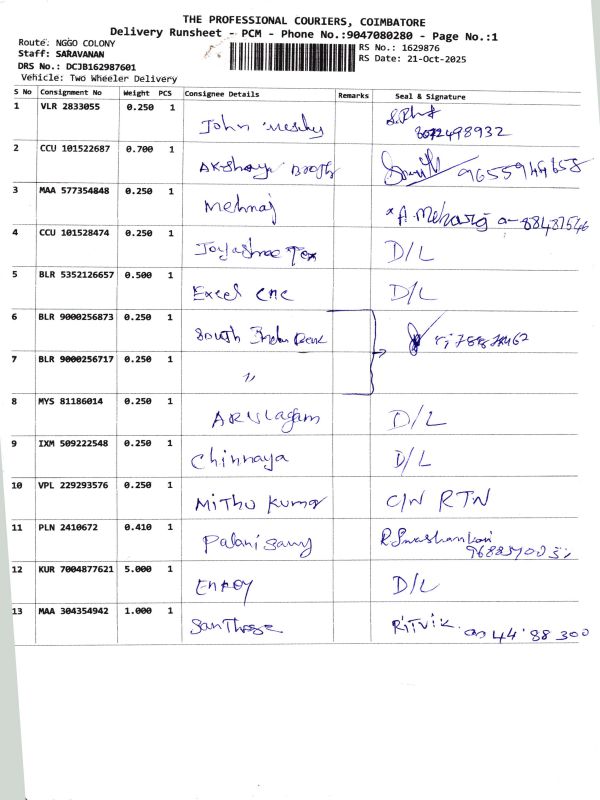 THE PROFESSIONAL COURIERS, COIMBATORE
Delivery Runsheet - PCM - Phone No.:9047080280 - Page No.:1
Route: NGGO COLONY
Staff: SARAVANAN
DRS No.: DCJB162987601
Vehicle: Two Wheeler Delivery
RS No.: 1629876
RS Date: 21-Oct-2025
S No Consignment No Weight PCS Consignee Details Remarks Seal & Signature
1 VLR 2833055 0.250 1 John
8072498932
2 CCU 101522687 0.700 1 Akshaya Booth 9655944658
3 MAA 577354848 0.250 1
4 CCU 101528474 0.250 1 Jayashree Tex D/L
5 BLR 5352126657 0.500 1 Excel CNC D/L
6 BLR 9000256873 0.250 1 South
7 BLR 9000256717 0.250 1 "
8 MYS 81186014 0.250 1 ARULagam D/L
9 IXM 509222548 0.250 1 Chinnaya D/L
10 VPL 229293576 0.250 1 Mithu Kumar C/N RTN
11 PLN 2410672 0.410 1 Palanisamy
12 KUR 7004877621 5.000 1 D/L
13 MAA 304354942 1.000 1 Ritvik